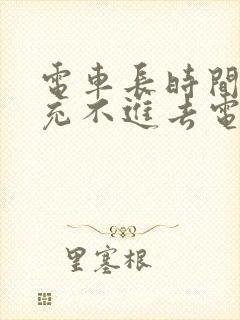 電車長時間
充不進去電
里塞根